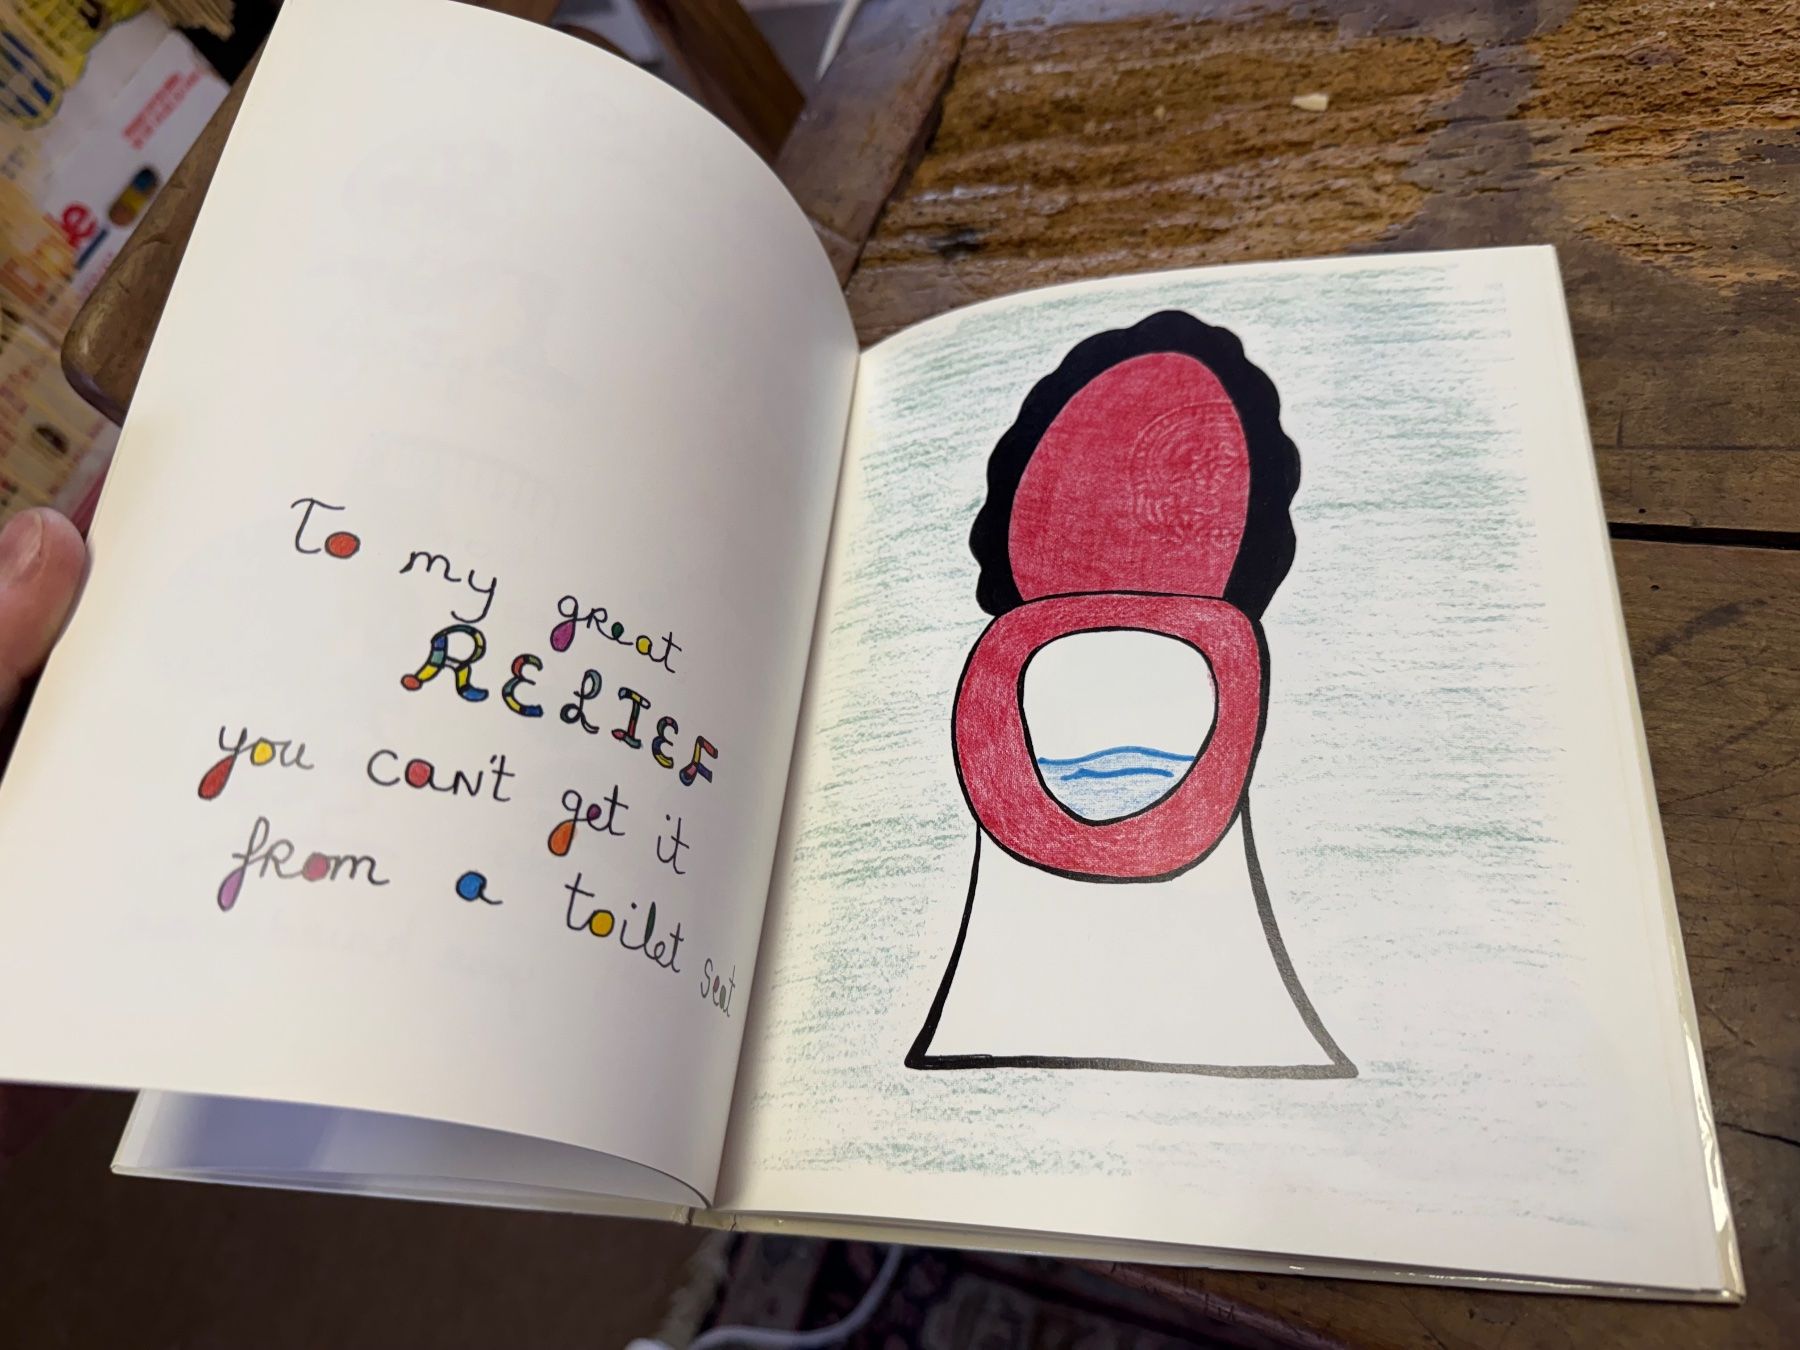 To my great
RELIEF
you can't get it
from a toilet seat